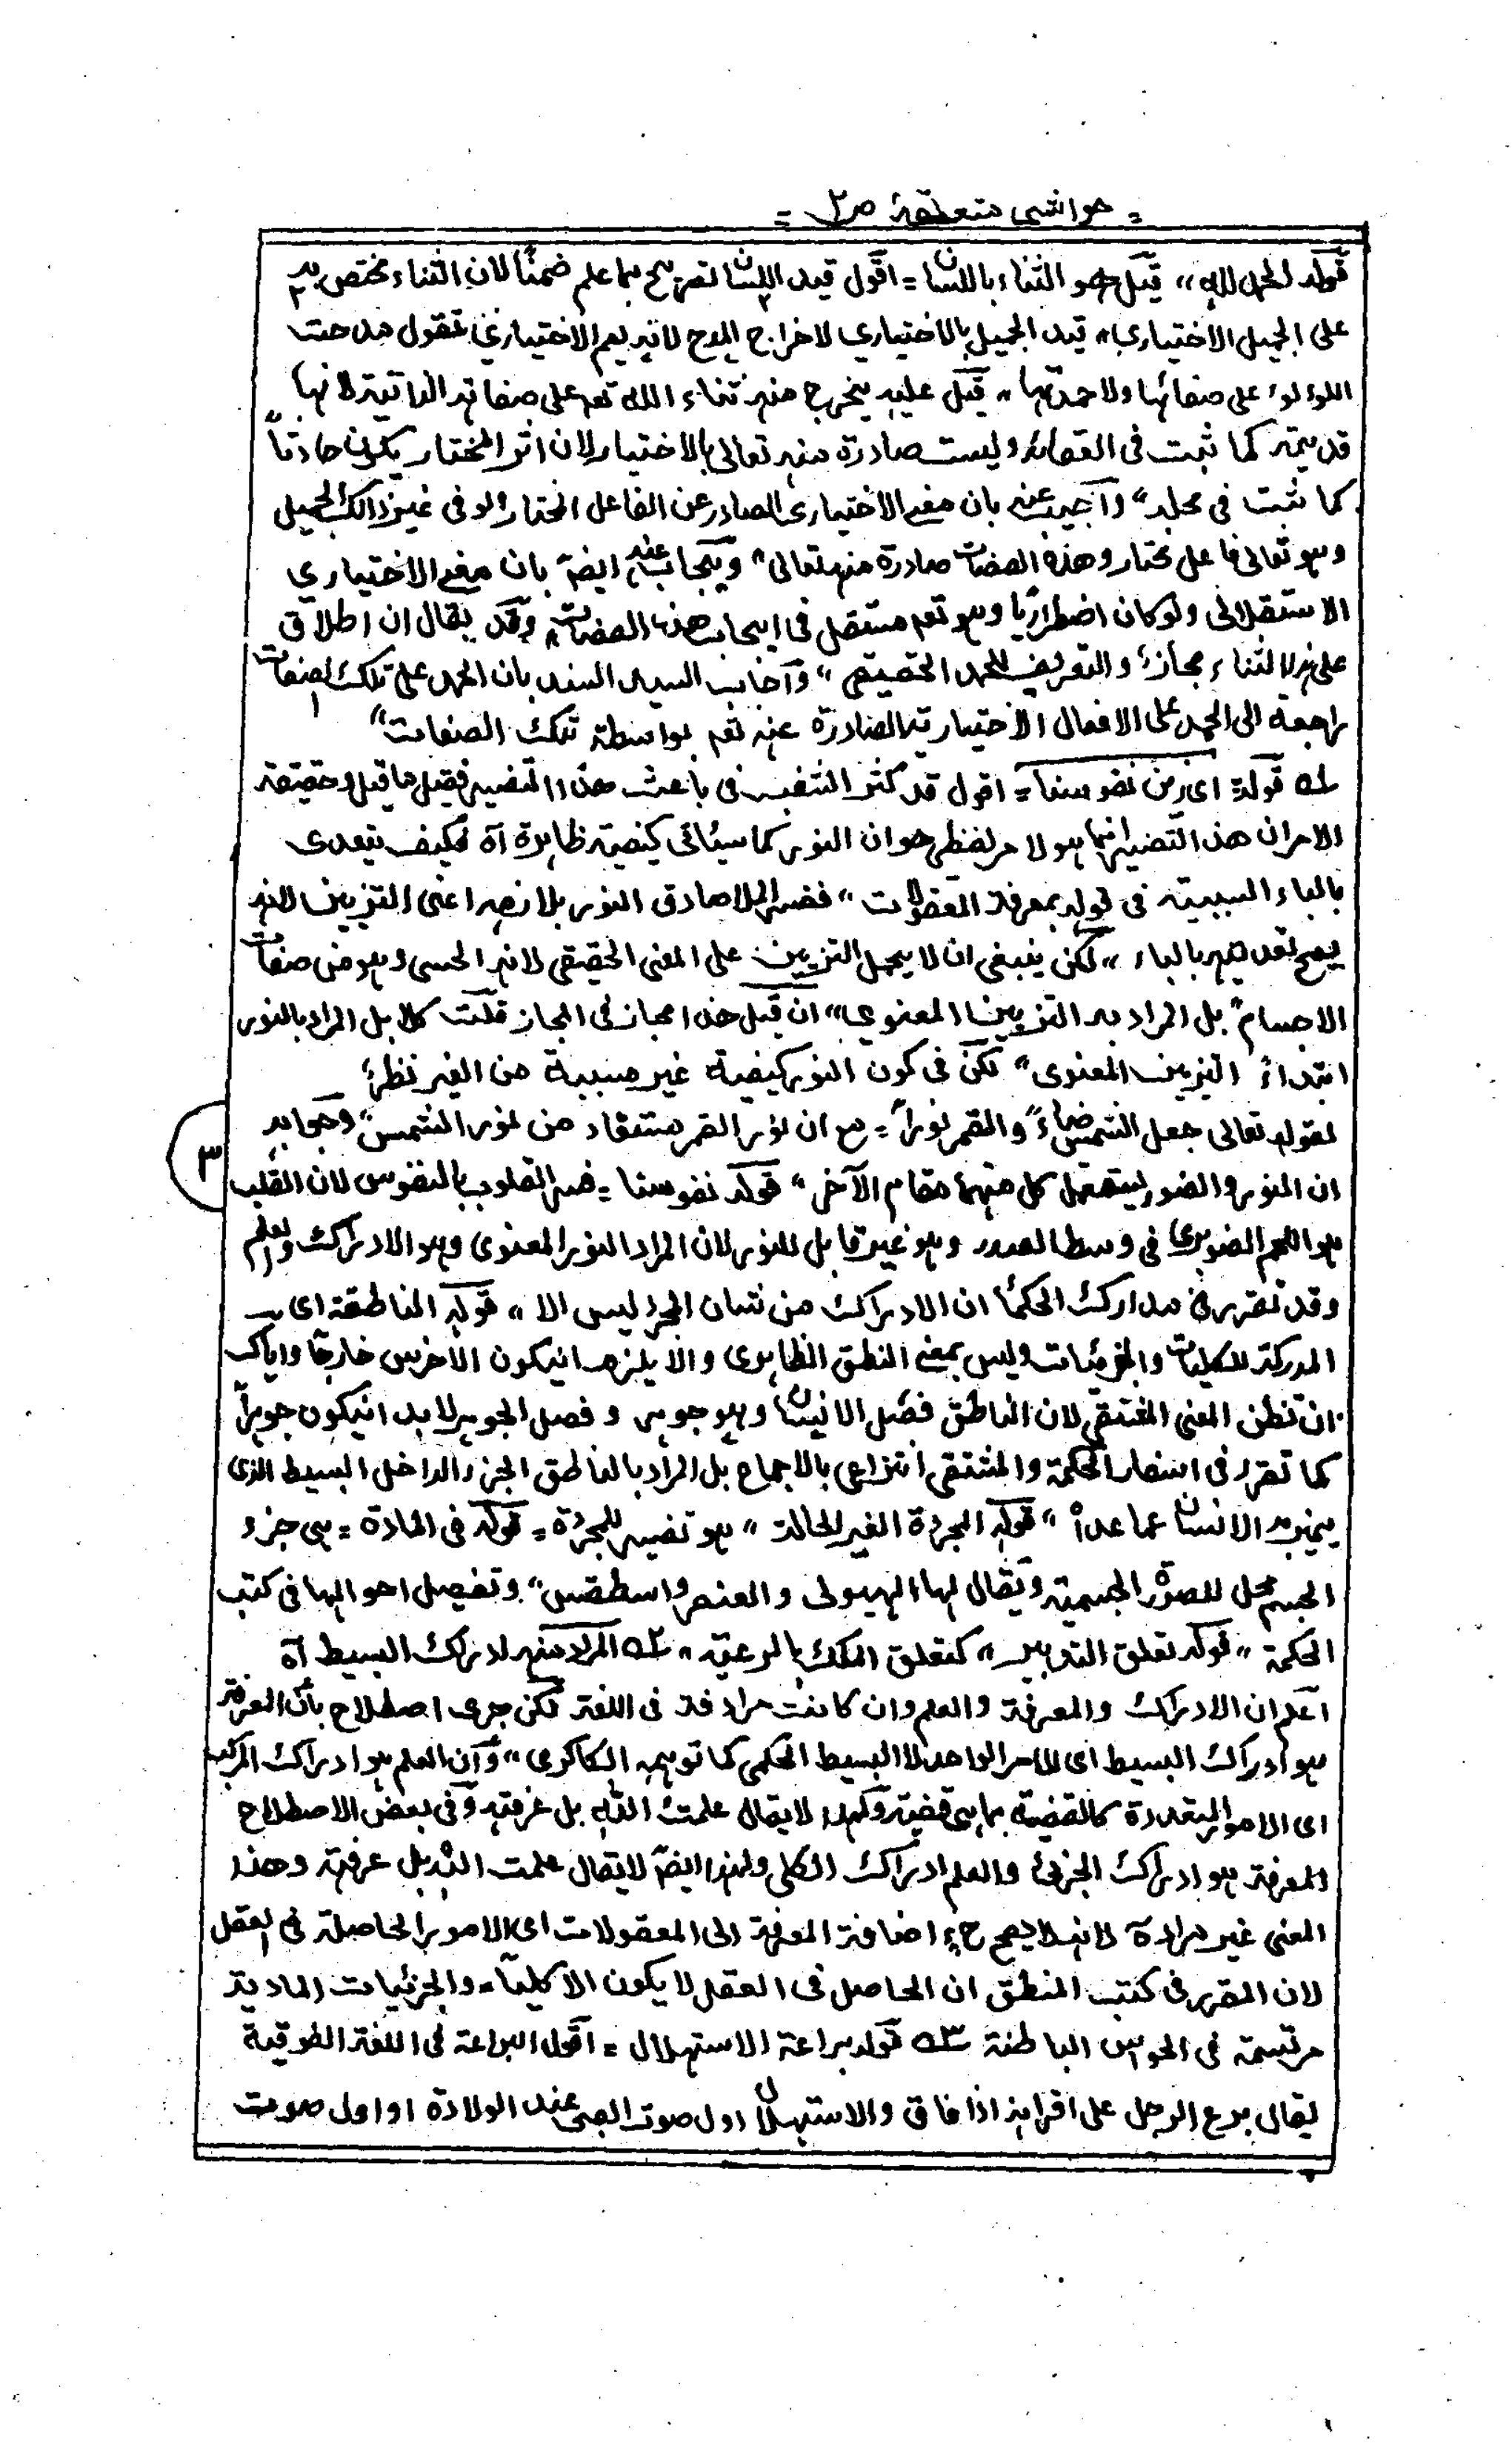 = حواشی متعلقهٔ ص٢ =
قوله الحمد لله ،، قيل هو الثناء باللسان = اقول قيد اللسان تصريح بما علم ضمنًا لان الثناء مختص به
على الجميل الاختياری ،، قيد الجميل بالاختياري لاخراج المدح لانه يعم الاختياری تقول مدحت
اللؤلؤ على صفائها ولا حمدتها ،، قيل عليه يخرج منه ثناء الله تعـ على صفاته الذاتية لانها
قديمة كما ثبت فى العقائد وليست صادرة منه تعالى بالاختيار لان اثر المختار يكون حادثاً
كما ثبت فى محله ،، وأجيب عنه بان معنى الاختياری الصادر عن الفاعل المختار ولو فى غير ذالك الجميل
وهو تعالى فاعل مختار وهذه الصفات صادرة منه تعالى ،، ويجاب عنه ايضًا بان معنى الاختياري
الاستقلالى ولو كان اضطراريًا وهو تعـ مستقل فى ايجاب هذه الصفات ،، وقد يقال ان اطلاق
على هذا الثناء مجازٌ والتعريف للحمد الحقيقى ،، وأجاب السيد السند بان الحمد على تلك الصفات
راجعة الى الحمد على الافعال الاختيارية الصادرة عنه تعـ بواسطة تلك الصفات ،،
١ه قوله اى زين نفوسنا = اقول قد كثر التفسير فى باعث هذا التفسير فقيل ما قيل وحقيقة
الامر ان هذا التفسير انما هو لامر لفظى هو ان النور كما سيأتى كيفية ظاهرة آه فكيف يتعدى
بالباء السببية فى قوله بمعرفة المعقولات ،، ففسر الملا صادق النور بلازمه اعنى التزيين لانه
يصح تعديته بالباء ،، لكن ينبغى ان لا يحمل التزيين على المعنى الحقيقى لانه الحسى وهو من صفات
الاجسام بل المراد به التزيين المعنوی ،، ان قيل هذا مجاز فى المجاز قلت كلا بل المراد بالنور
ابتداءً التزيين المعنوى ،، لكن فى كون النور كيفية غير مسببة من الغير نظرٌ
لقوله تعالى جعل الشمس ضياءً والقمر نوراً = مع ان نور القمر مستفاد من نور الشمس وجوابه
ان النور والضوء يستعمل كل منهما مقام الآخر ،، قوله نفوسنا = فسر القلوب بالنفوس لان القلب
٣
هو اللحم الصنوبرى فى وسط الصدر وهو غير قابل للنور لان المراد النور المعنوى وهو الادراك والعلم
وقد تقرر فى مدارك الحكما ان الادراك من شان المجرد ليس الا ،، قوله الناطقة اى
المدركة للكليات والجزئيات وليس بمعنى النطق الظاهرى والا يلزم انيكون الاخرس خارجًا واياك
ان تظن المعنى المشتقى لان الناطق فصل الانسان وهو جوهر وفصل الجوهر لابد انيكون جوهراً
كما تقرر فى اسفار الحكمة والمشتقى انتزاعى بالاجماع بل المراد بالناطق الجزء الداخل البسيط الذى
يميز به الانسان عما عداه ،، قوله المجردة الغير الحالة ،، هو تفسير للمجردة = قوله فى المادة = هى جزو
الجسم محل للصور الجسمية ويقال لها الهيولى والعنصر واسطقس ،، وتفصيل احوالها فى كتب
الحكمة ،، قوله تعلق التدبير ،، كتعلق الملك بالرعية ،، ٢ه المراد منه ادراك البسيط آه
اعلم ان الادراك والمعرفة والعلم وان كانت مرادفة فى اللغة لكن جرى اصطلاح بان المعرفة
هو ادراك البسيط اى الامر الواحد لا البسيط الحكمى كما توهمه الكاكوى ،، وان العلم هو ادراك المركب
اى الامور المتعددة كالقضية بما هى قضية ولهذا لا يقال علمت الله بل عرفته وفى بعض الاصطلاح
المعرفة هو ادراك الجزئى والعلم ادراك الكلى ولهذا ايضًا لا يقال علمت الله بل عرفته وهذا
المعنى غير مرادة لانه لا يصح ح اضافة المعرفة الى المعقولات اى الامور الحاصلة فى العقل
لان المقرر فى كتب المنطق ان الحاصل فى العقل لا يكون الا كلياً = والجزئيات المادية
مرتسمة فى الحواس الباطنة ٣ه قوله براعة الاستهلال = اقول البراعة فى اللغة الفوقية
يقال برع الرجل على اقرانه اذا فاق والاستهلال اول صوت الصبى عند الولادة او اول صوت